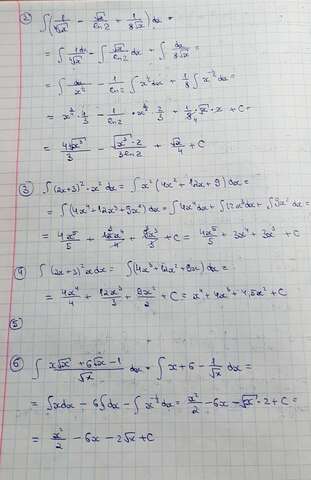 ② ∫(1/∜x - √x/ln2 + 1/8√x)dx =
= ∫ 1dx/∜x - ∫ √x/ln2 dx + ∫ dx/8√x =
= - 1/ln2 ∫ x^½ dx + 1/8 ∫ x^-½ dx =
= 4√x³/3 - √x³·2/3ln2 + √x/4 + C
③ ∫ (2x+3)²·x² dx = ∫ x²(4x²+12x+9) dx =
= ∫ (4x⁴+12x³+9x²) dx = ∫ 4x⁴dx + ∫ 12x³dx + ∫ 9x² dx =
= 4x⁵/5 + 12x⁴/4 + 9x³/3 + C = 4x⁵/5 + 3x⁴ + 3x³ + C
④ ∫ (2x+3)² x dx = ∫ (4x³+12x²+9x) dx =
= 4x⁴/4 + 12x³/3 + 9x²/2 + C = x⁴+4x³+4,5x²+C
⑤
⑥ ∫ x√x + 6√x - 1/√x dx = ∫ x + 6 - 1/√x dx =
= ∫xdx - 6∫dx - ∫x^-½ dx = x²/2 - 6x - √x·2 + C =
= x²/2 - 6x - 2√x + C